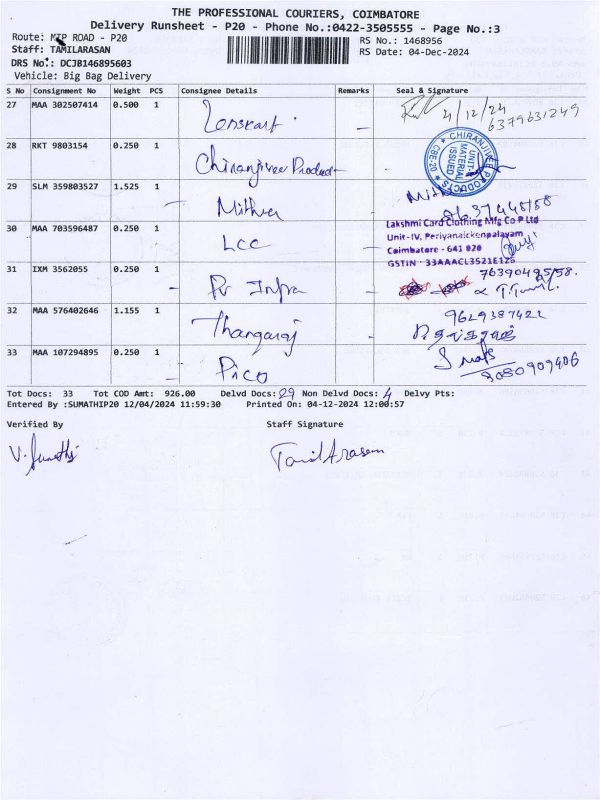 THE PROFESSIONAL COURIERS, COIMBATORE
Delivery Runsheet - P20 - Phone No.:0422-3505555 - Page No.:3
Route: MTP ROAD - P20
RS No.: 1468956
Staff: TAMILARASAN
RS Date: 04-Dec-2024
DRS No: DCJB146895603
Vehicle: Big Bag Delivery
S No Consignment No Weight PCS Consignee Details Remarks Seal & Signature
27 MAA 302507414 0.500 1 Lenskart 4/12/24
6379631249
28 RKT 9803154 0.250 1 Chiranjivee Product
CHIRANJIVEE PRODUCTS CBE-20 UNIT-I MATERIAL ISSUED
29 SLM 359803527 1.525 1 Mithra
30 MAA 703596487 0.250 1 LCC
Lakshmi Card Clothing Mfg Co P Ltd
Unit-IV, Periyanaickenpalayam
Coimbatore - 641 020
GSTIN - 33AAACL3521E1Z6
31 IXM 3562055 0.250 1 Pv Infra
32 MAA 576402646 1.155 1 Thangaraj 9629387422
33 MAA 107294895 0.250 1 Pico
8080909406
Tot Docs: 33 Tot COD Amt: 926.00 Delvd Docs: 29 Non Delvd Docs: 4 Delvy Pts:
Entered By :SUMATHIP20 12/04/2024 11:59:30 Printed On: 04-12-2024 12:00:57
Verified By Staff Signature
V. Sumathi TamilArasan